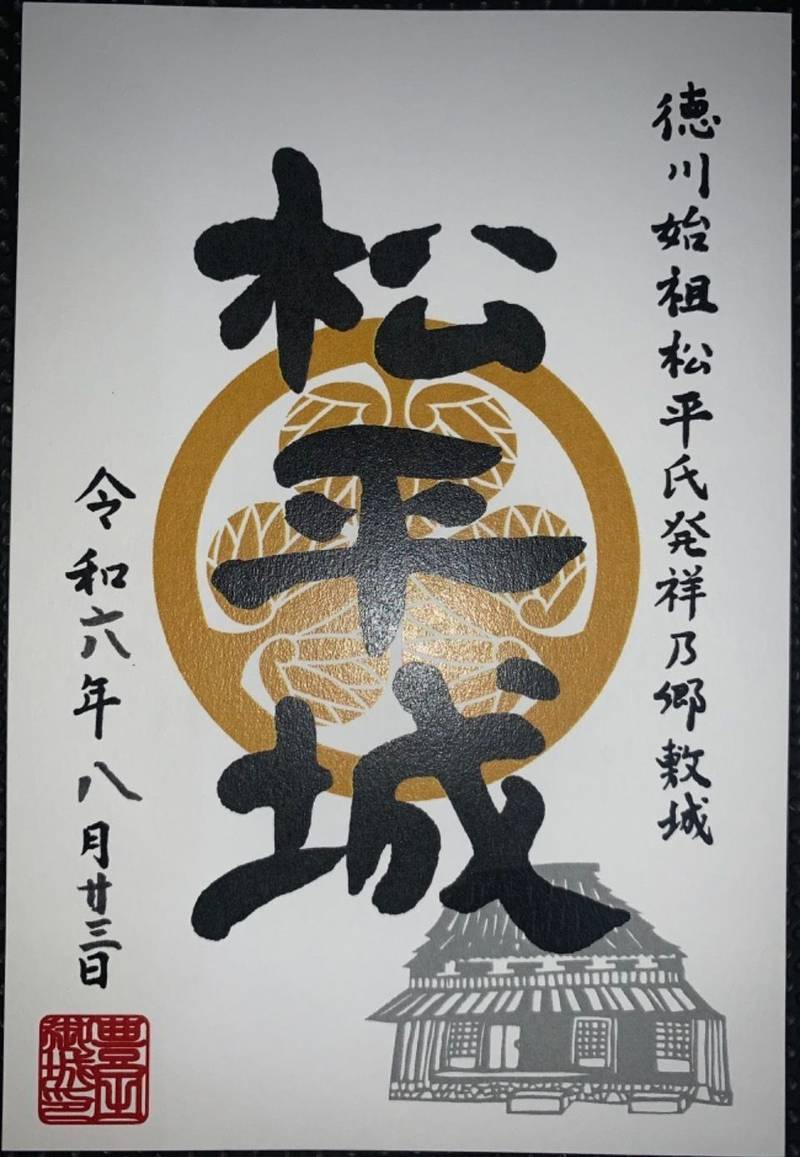 徳川始祖松平氏発祥乃郷敷城
松平城
令和六年八月廿三日